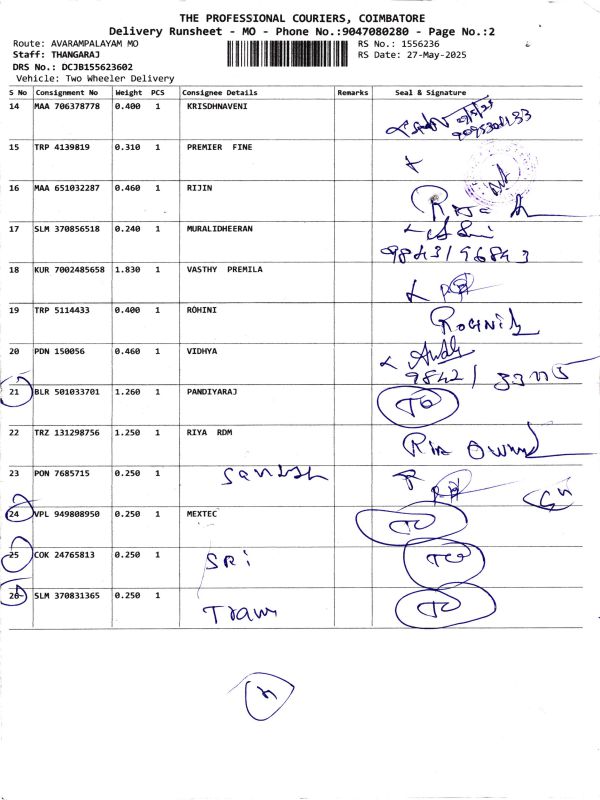 THE PROFESSIONAL COURIERS, COIMBATORE
Delivery Runsheet - MO - Phone No.:9047080280 - Page No.:2
Route: AVARAMPALAYAM MO RS No.: 1556236
Staff: THANGARAJ RS Date: 27-May-2025
DRS No.: DCJB155623602
Vehicle: Two Wheeler Delivery
S No Consignment No Weight PCS Consignee Details Remarks Seal & Signature
14 MAA 706378778 0.400 1 KRISDHNAVENI
15 TRP 4139819 0.310 1 PREMIER FINE
16 MAA 651032287 0.460 1 RIJIN
17 SLM 370856518 0.240 1 MURALIDHEERAN
9843196843
18 KUR 7002485658 1.830 1 VASTHY PREMILA
19 TRP 5114433 0.400 1 ROHINI
20 PDN 150056 0.460 1 VIDHYA
21 BLR 501033701 1.260 1 PANDIYARAJ
22 TRZ 131298756 1.250 1 RIYA RDM
23 PON 7685715 0.250 1
24 VPL 949808950 0.250 1 MEXTEC
25 COK 24765813 0.250 1 SRi
26 SLM 370831365 0.250 1